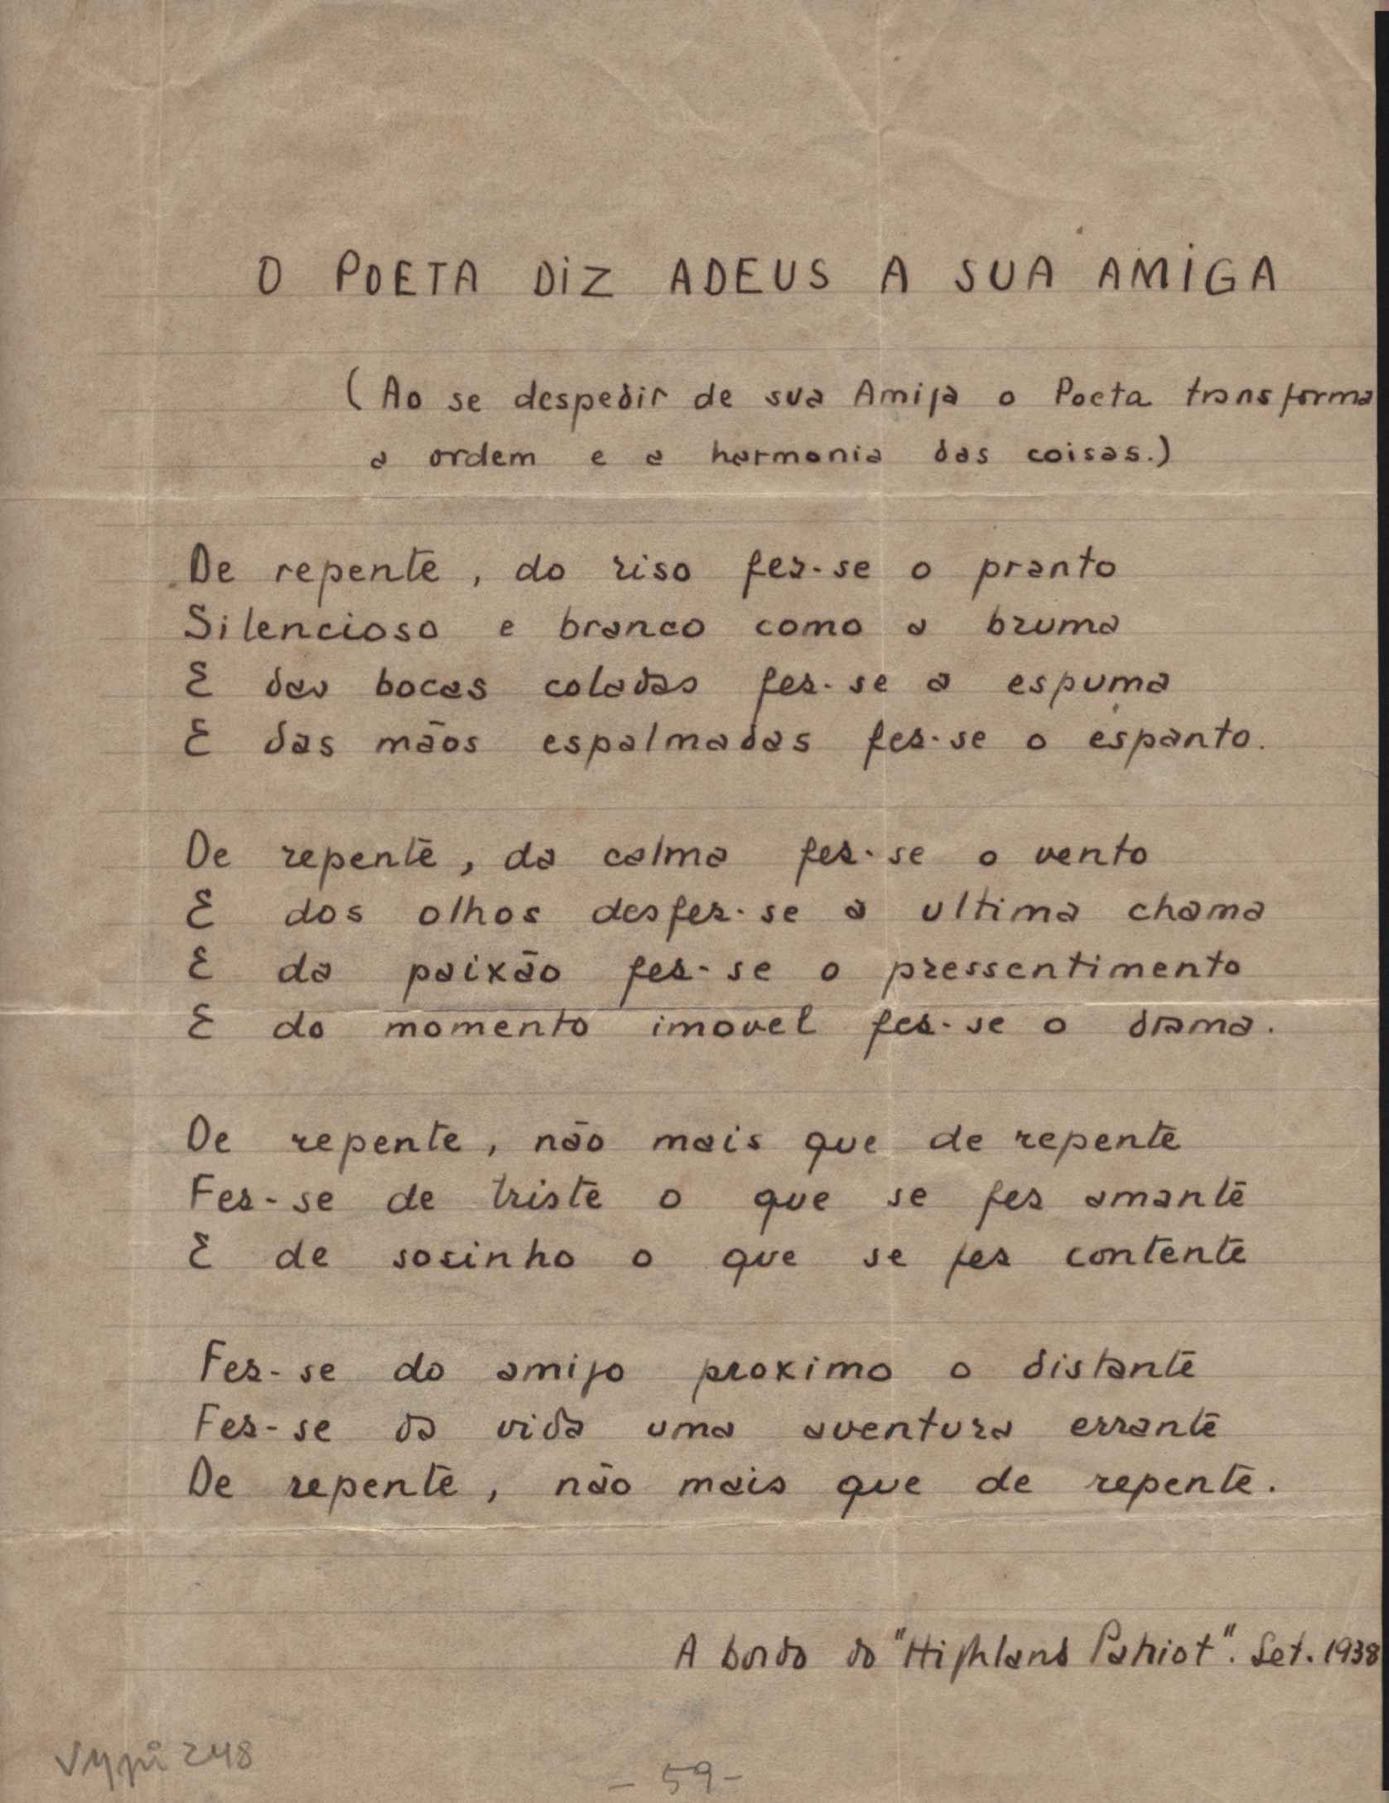 O POETA DIZ ADEUS A SUA AMIGA
(Ao se despedir de sua Amiga o Poeta transforma
a ordem e a harmonia das coisas.)
De repente, do riso fez-se o pranto
Silencioso e branco como a bruma
E das bocas coladas fez-se a espuma
E das mãos espalmadas fez-se o espanto.
De repente, da calma fez-se o vento
E dos olhos desfez-se a ultima chama
E da paixão fez-se o pressentimento
E do momento imovel fez-se o drama.
De repente, não mais que de repente
Fez-se de triste o que se fez amante
E de sozinho o que se fez contente
Fez-se do amigo proximo o distante
Fez-se da vida uma aventura errante
De repente, não mais que de repente.
A bordo do "Highland Patriot". Set. 1938
248
- 59 -